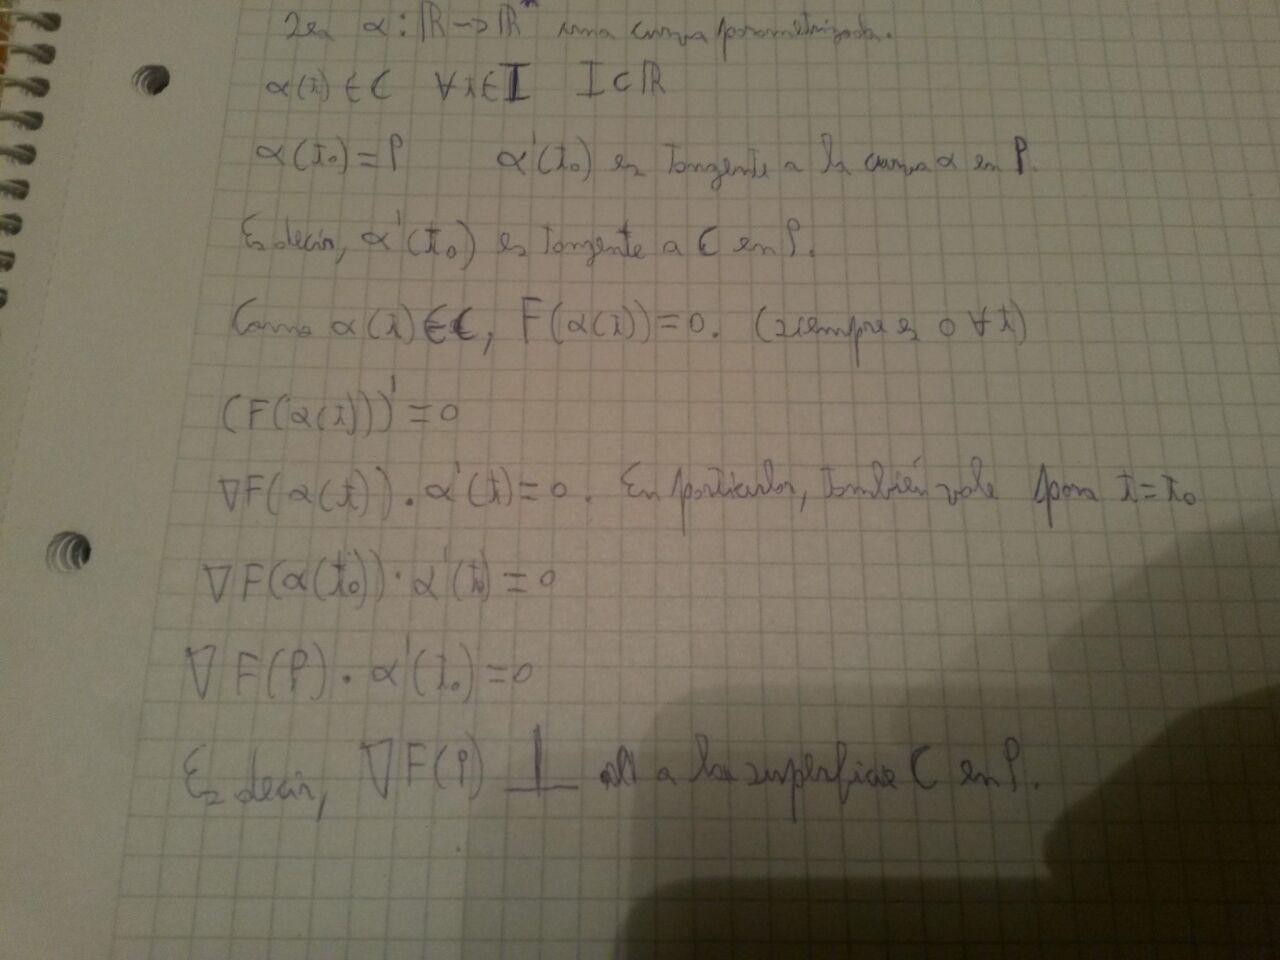 Sea α: ℝ→ℝⁿ una curva parametrizada.
α(t) ∈ C ∀t∈I I⊂ℝ
α(t₀)=P α'(t₀) es tangente a la curva α en P.
Es decir, α'(t₀) es tangente a C en P.
Como α(t)∈C, F(α(t))=0. (siempre es 0 ∀t)
(F(α(t)))'=0
∇F(α(t))·α'(t)=0. En particular, también vale para t=t₀
∇F(α(t₀))·α'(t₀)=0
∇F(P)·α'(t₀)=0
Es decir, ∇F(P) ⊥ a la superficie C en P.